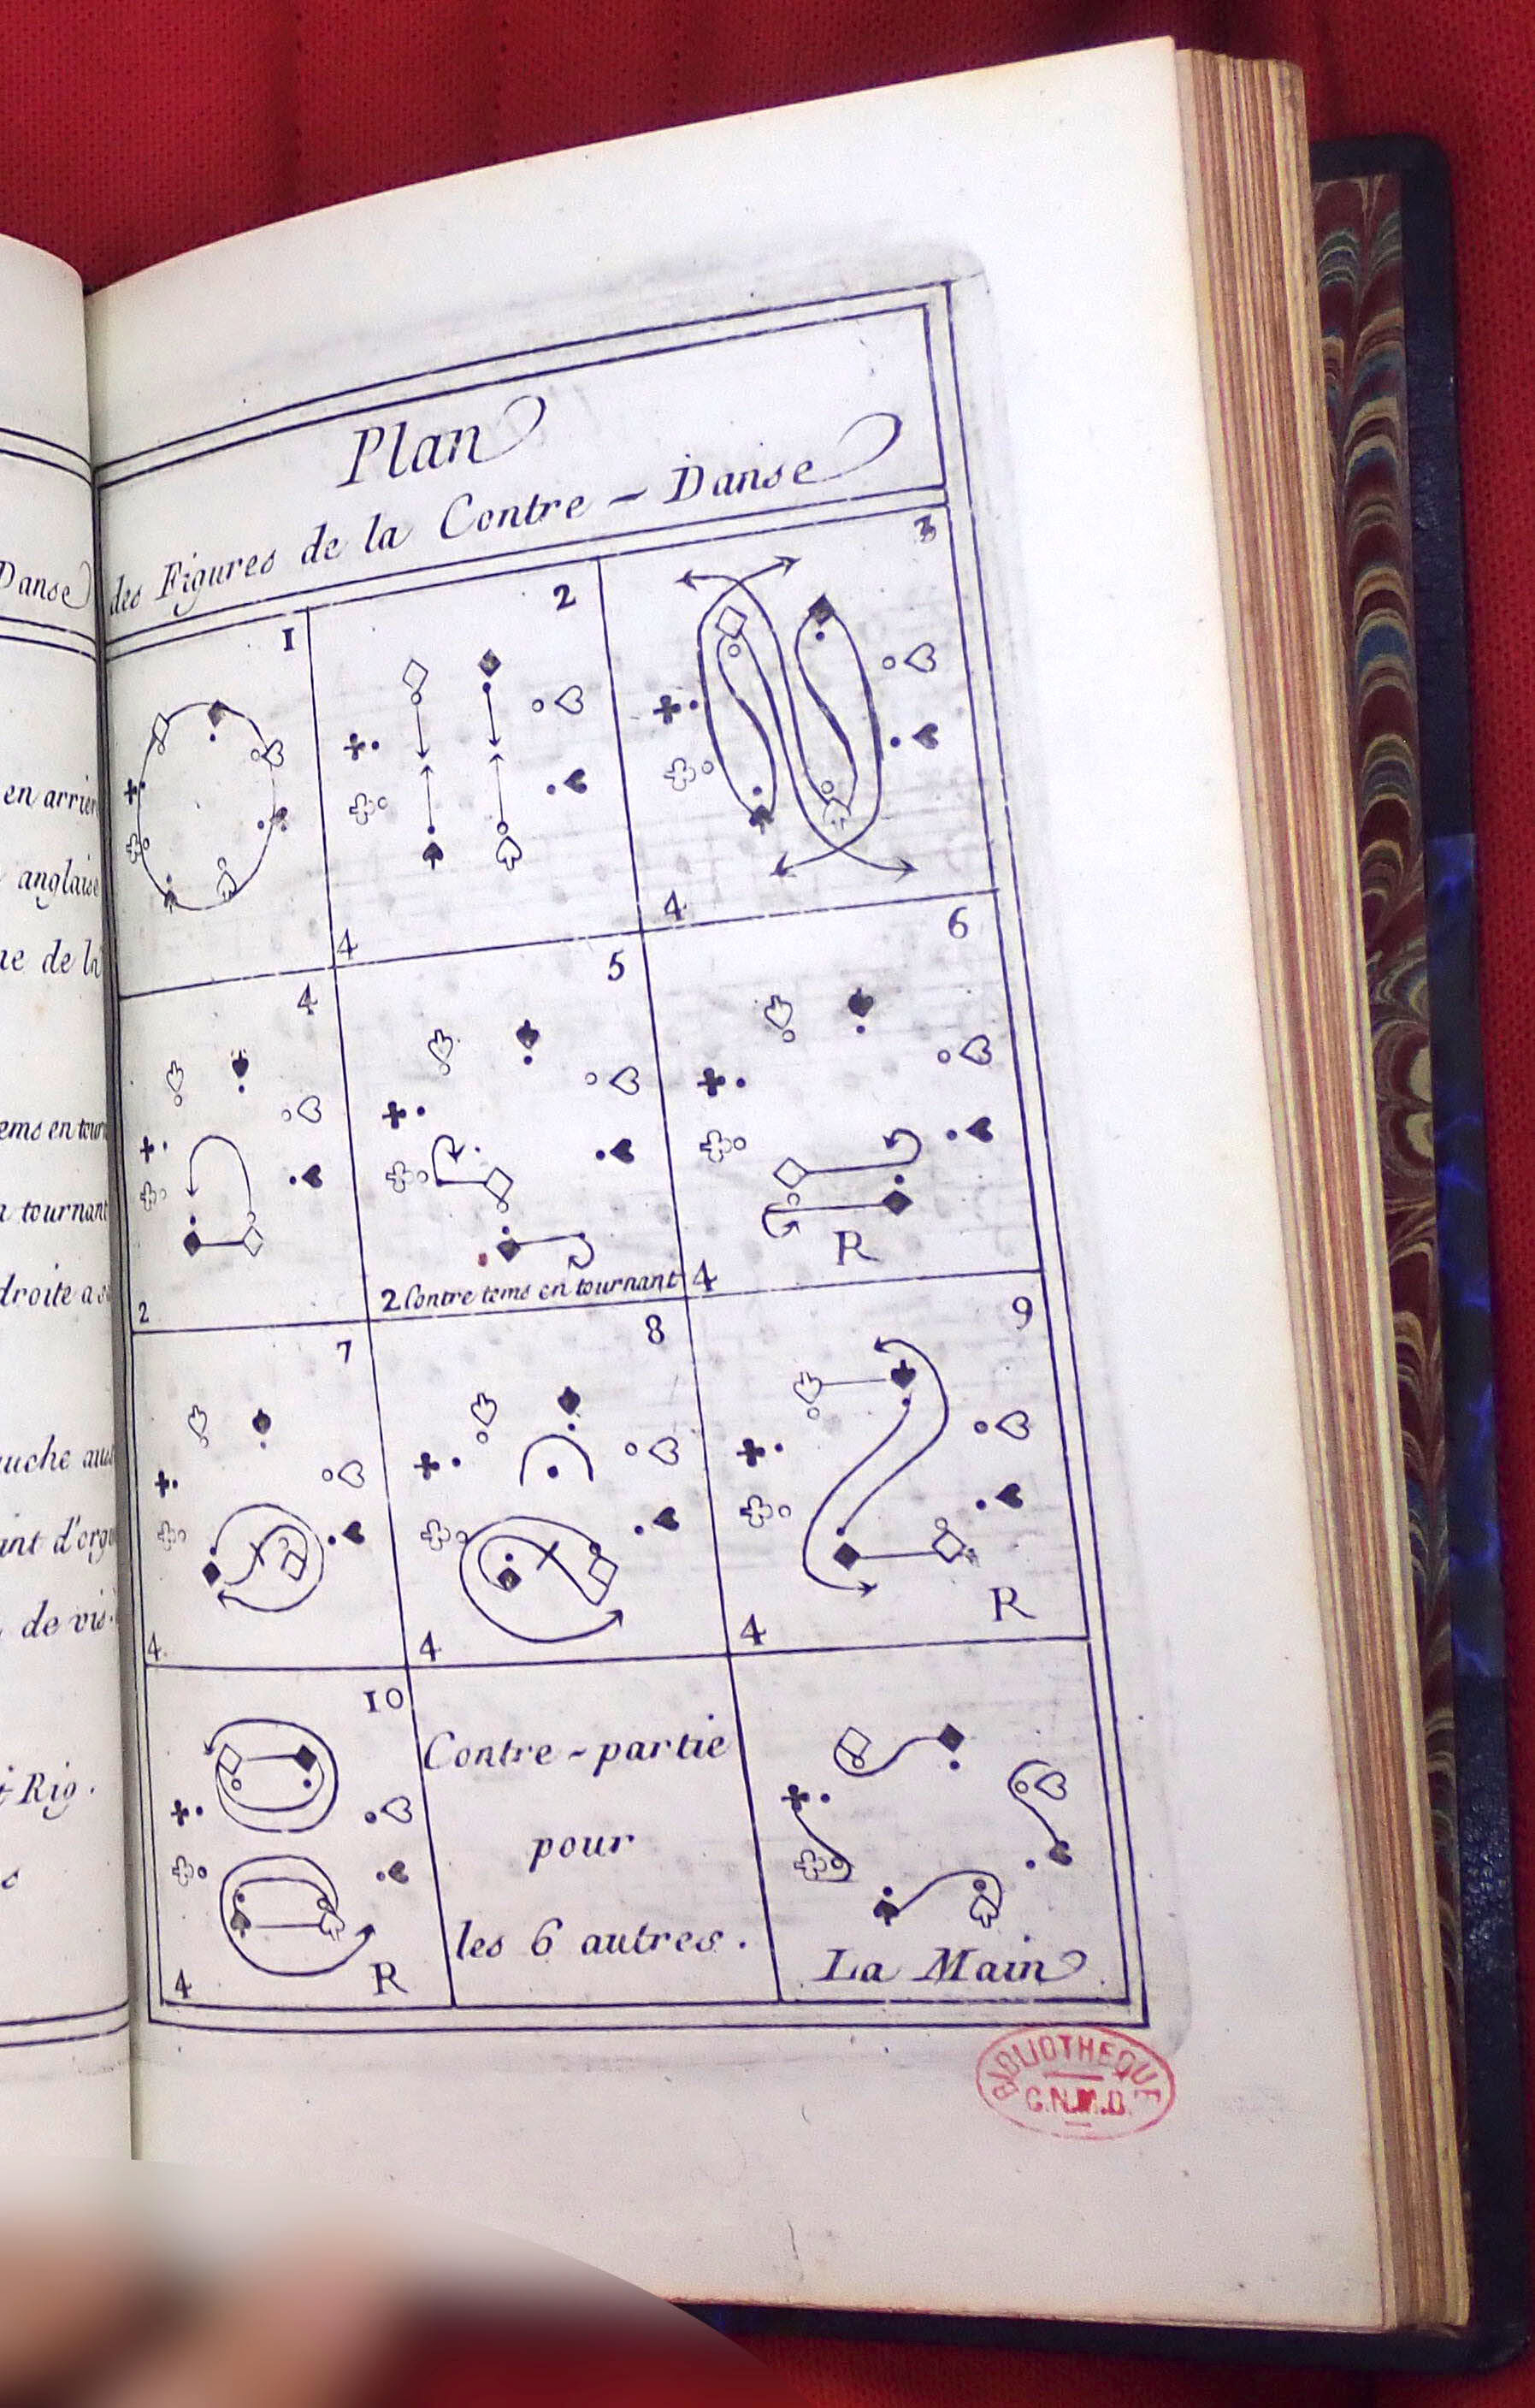 Danse
en arrier
anglaise
ne de la
tems en tourn
n tournant
droite a s
uche aus
int d'orgu
de vis
t Rig.
Plan
des Figures de la Contre - Danse
1
2
4
3
4
4
2
5
2 Contre tems en tournant
6
R
4
7
4
8
4
9
R
4
10
4
R
Contre - partie
pour
les 6 autres.
La Main
BIBLIOTHEQUE
C.N.M.D.